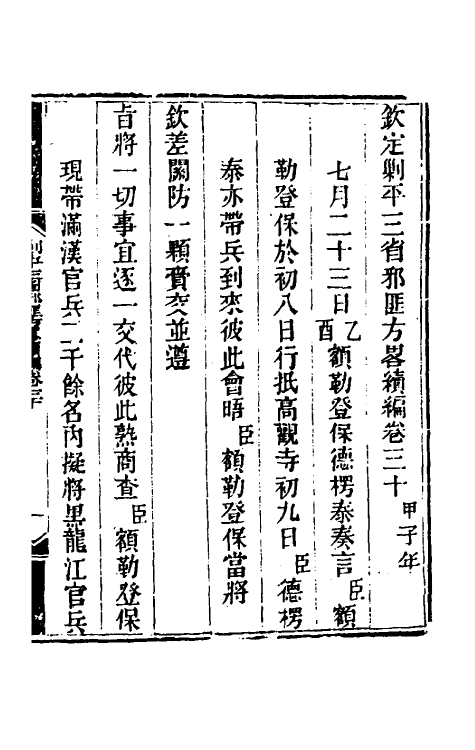 欽定剿平三省邪匪方畧續編卷三十 甲子年
七月二十三日乙酉額勒登保德楞泰奏言臣額
勒登保於初八日行抵高觀寺初九日臣德楞
泰亦带兵到來彼此會晤臣額勒登保當將
欽差關防一顆賫交並遵
旨將一切事宜逐一交代彼此熟商查臣額勒登保
現帶滿漢官兵二千餘名內擬將黑龍江官兵